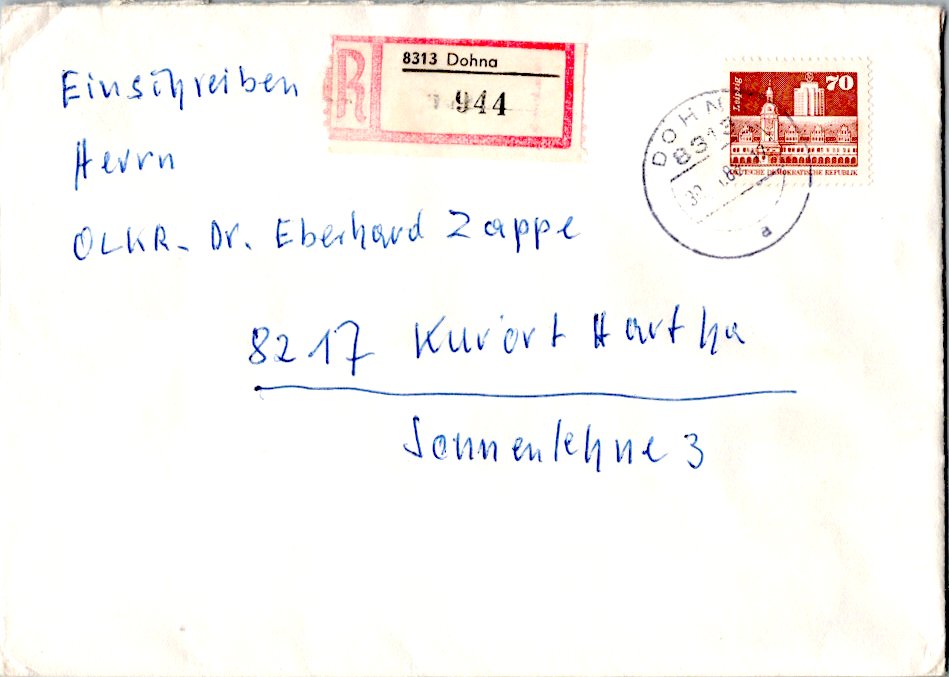 Einschreiben
R
8313 Dohna
944
Leipzig
70
DEUTSCHE DEMOKRATISCHE REPUBLIK
DOHNA
8313
a
Herrn
OLKR. Dr. Eberhard Zappe
8217 Kurort Hartha
Sonnenlehne 3